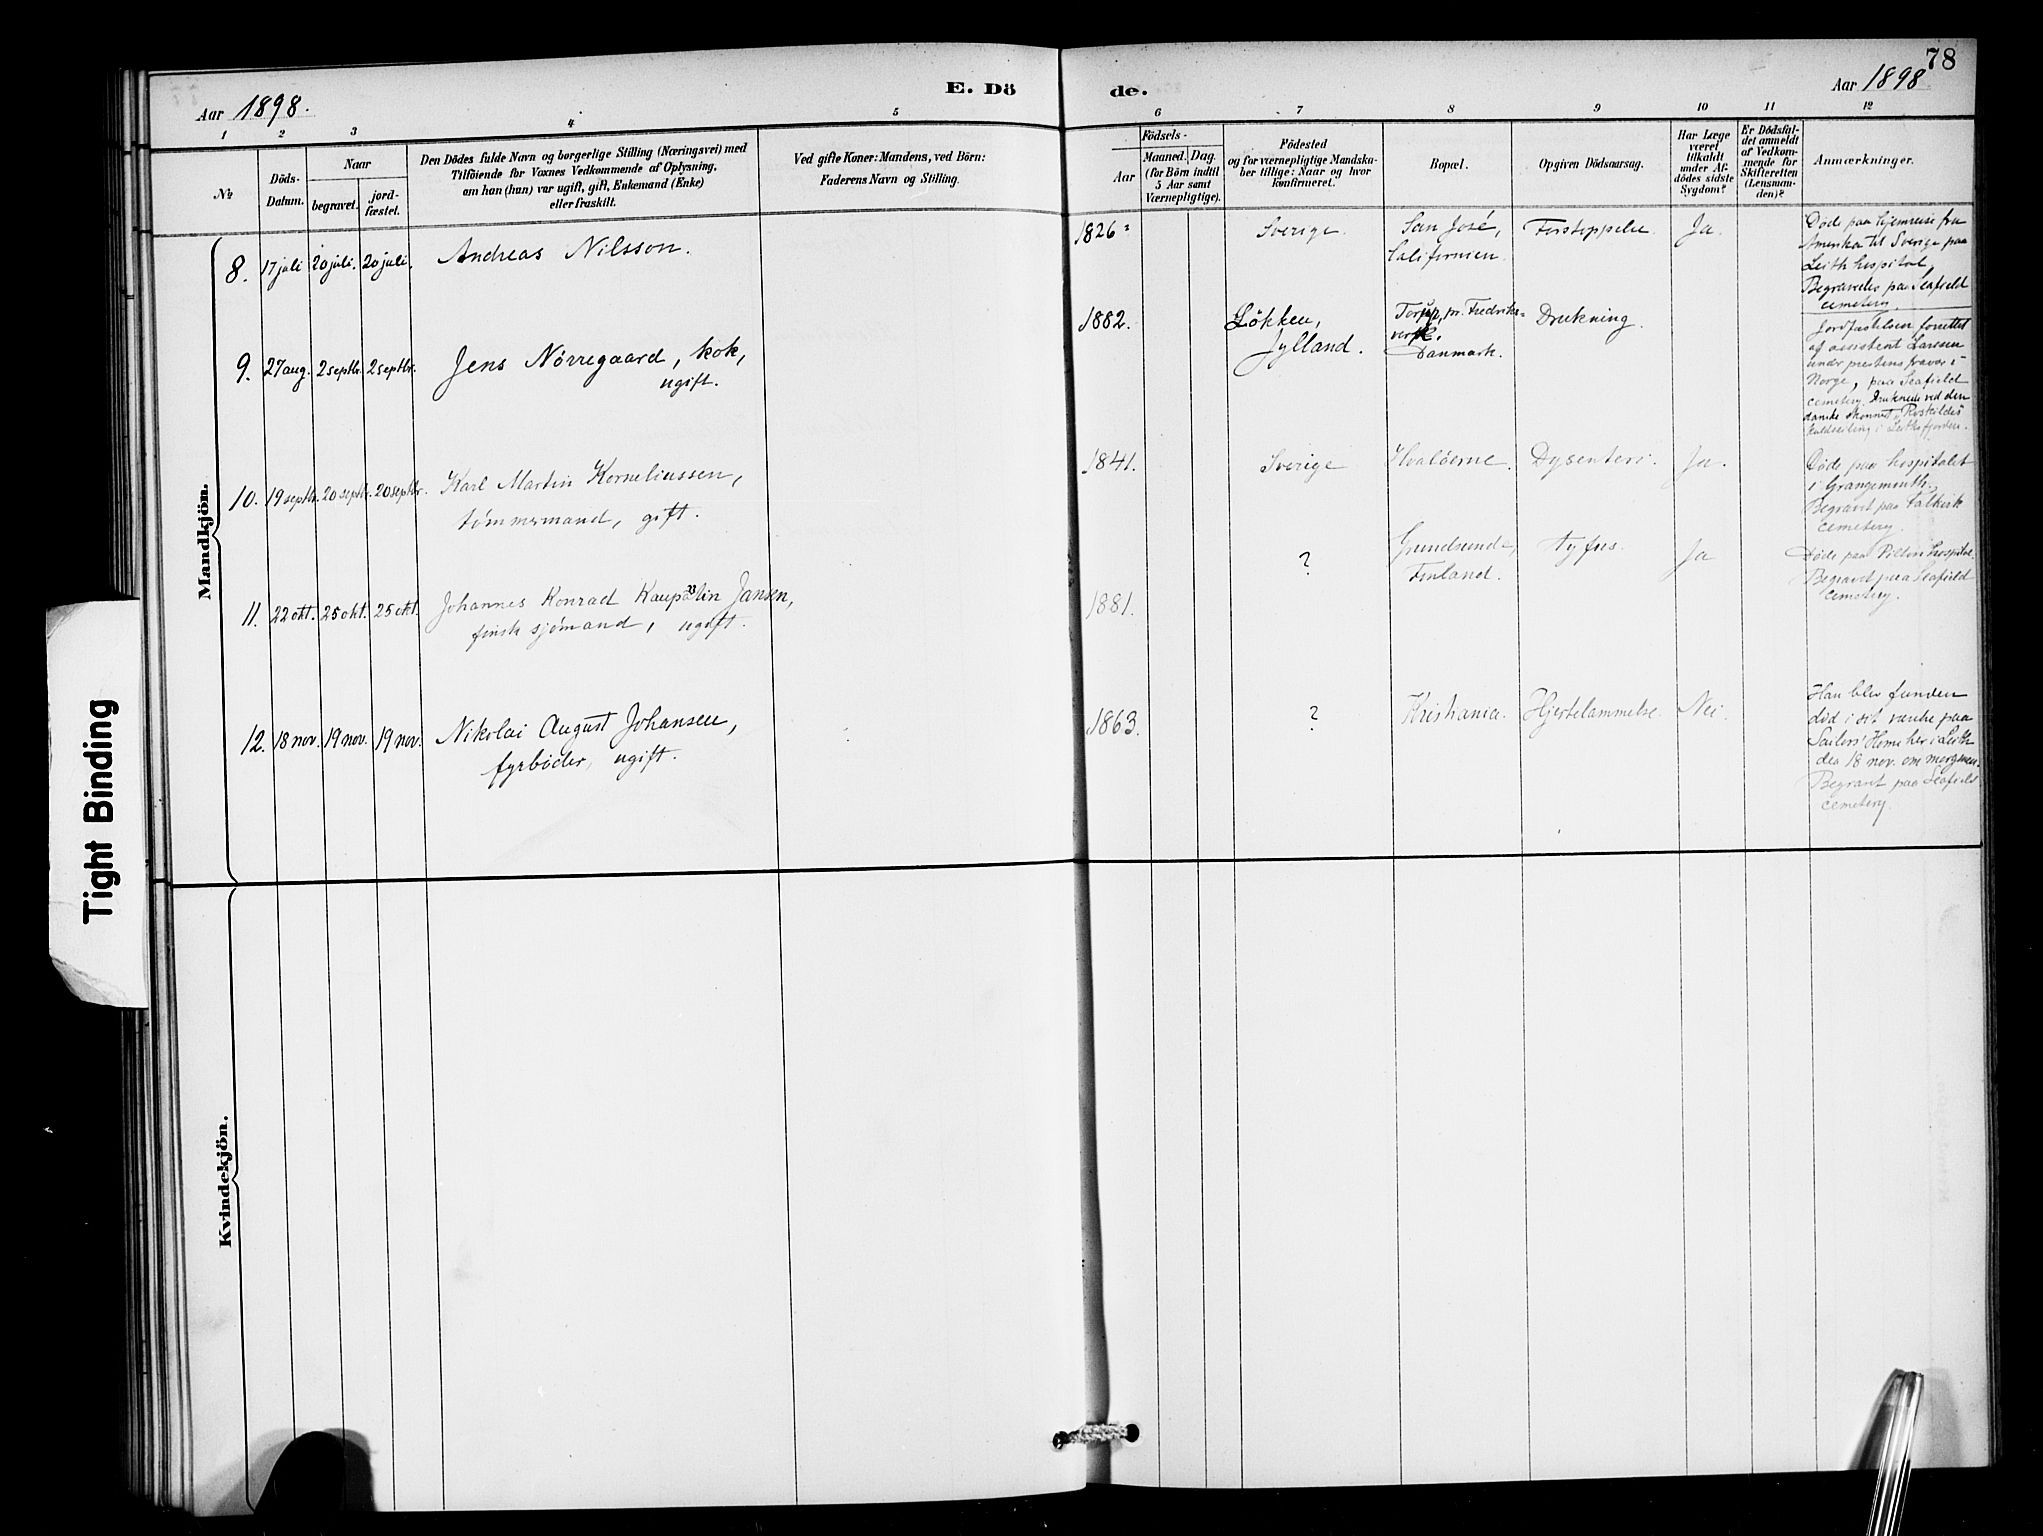 78
Aar 1898.
E. Dö
de.
Aar 1898
1 2 3 4 5 6 7 8 9 10 11 12
No
Döds-
Datum.
Naar
begravet.
jord-
fæstet.
Den Dödes fulde Navn og borgerlige Stilling (Næringsvei) med
Tilföiende for Voxnes Vedkommende af Oplysning,
om han (hun) var ugift, gift, Enkemand (Enke)
eller fraskilt.
Ved gifte Koner: Mandens, ved Börn:
Faderens Navn og Stilling.
Födsels-
Aar
Maaned. Dag.
(for Börn indtil
5 Aar samt
Værnepligtige).
Födested
og for værnepligtige Mandska-
ber tillige: Naar og hvor
konfirmeret.
Bopæl.
Opgiven Dödsaarsag.
Har Læge
været
tilkaldt
under Af-
dödes sidste
Sygdom?
Er Dödsfal-
det anmeldt
af Vedkom-
mende for
Skifteretten
(Lensman-
den)?
Anmærkninger.
Mandkjön.
8. 17 juli 20 juli. 20 juli. Andreas Nilsson.
1826 Sverige. San José,
Californien. Forstoppelse. Ja.
Döde paa hjemreise fra
Amerika til Sverige paa
Leith hospital.
Begravedes paa Seafield
cemetery.
9. 27 aug. 2 septbr. 2 septbr. Jens Nörregaard, kok,
ugift.
1882. Lökken,
Jylland. Torup, pr. Fredriks-
værk,
Danmark. Drukning.
Jordfæstelsen forrettet
af assistent Larssen
under prestens fravær i
Norge, paa Seafield
cemetery. Druknede ved den
danske skonnert "Roskilde's"
kuldseiling i Leithsfjorden.
10. 19 septbr. 20 septbr. 20 septbr. Karl Martin Korneliussen,
tömmermand, gift.
1841. Sverige Hvalöerne. Dysenteri. Ja.
Döde paa hospitalet
i Grangemouth.
Begravet paa Falkirk
cemetery.
11. 22 okt. 25 okt. 25 okt. Johannes Konrad Jansen,
finsk sjömand, ugift.
1881. ? Grundsunda,
Finland. tyfus. Ja
Döde paa Pilton hospital.
Begravet paa Seafield
cemetery.
12. 18 nov. 19 nov. 19 nov. Nikolai August Johansen,
fyrböder, ugift.
1863. ? Kristiania. Hjertelammelse. Nei.
Han blev funden
död i sit værelse paa
Sailors' Home her i Leith
den 18 nov. om morgenen.
Begravet paa Seafield
cemetery.
Kvindekjön.
Tight Binding